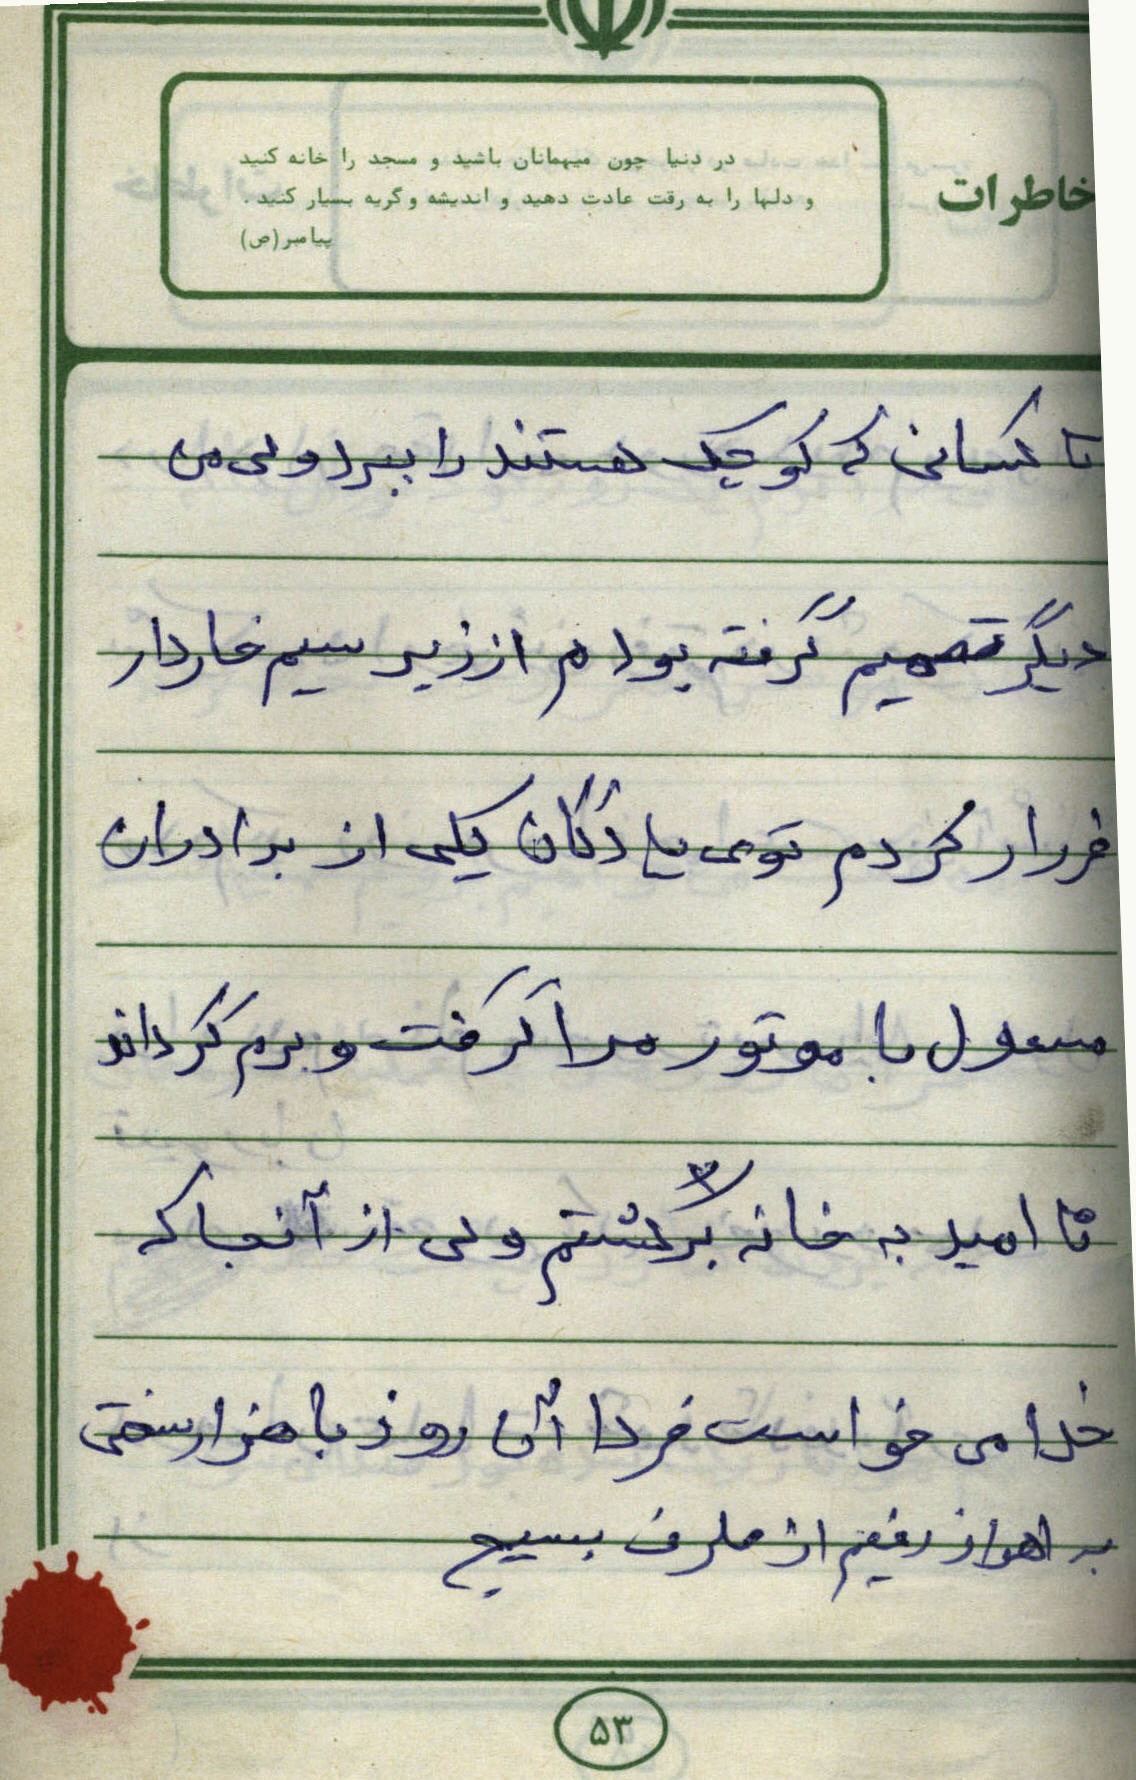 در دنیا چون میهمانان باشید و مسجد را خانه کنید
و دلها را به رقت عادت دهید و اندیشه و گریه بسیار کنید.
پیامبر(ص)
خاطرات
تا کسانی که کوچک هستند را ببرد ولی من
دیگر تصمیم گرفته بودم از زیر سیم خاردار
فرار کردم توی پادگان یکی از برادران
مسول با موتور مرا گرفت و برم گرداند
نا امید به خانه برگشتم ولی از آنجا که
خدا می خواست فردا آن روز با هزار سختی
به اهواز رفتیم از طرف بسیج
۵۳